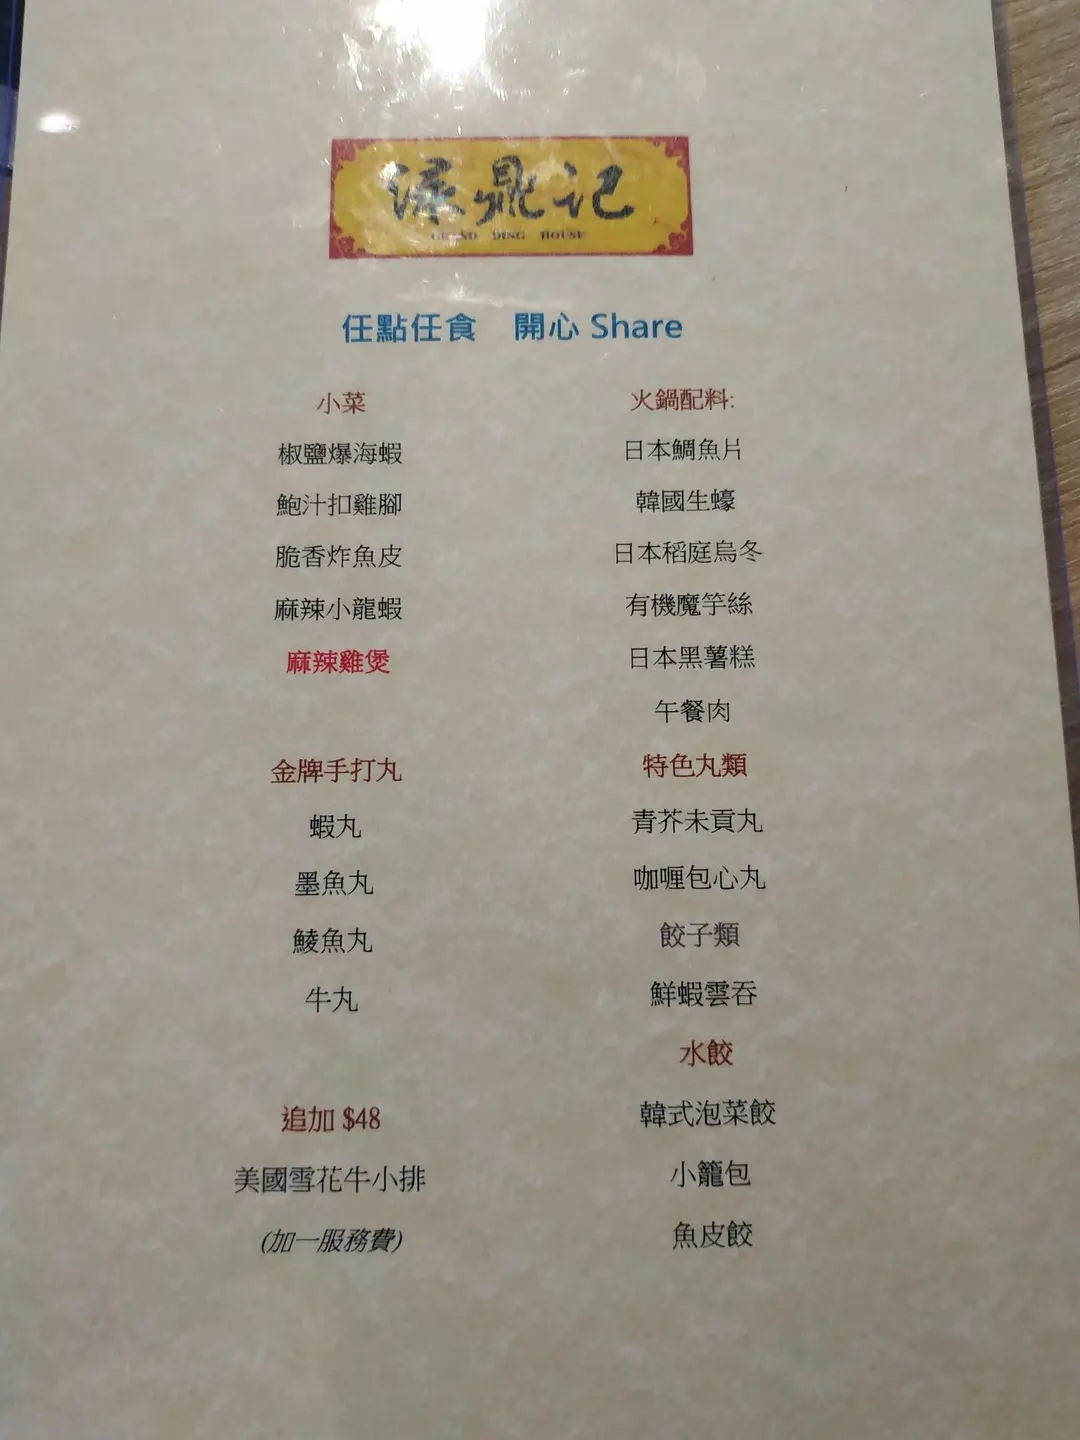 鼎記
DING HOUSE
任點任食 開心 Share
小菜
椒鹽爆海蝦
鮑汁扣雞腳
脆香炸魚皮
麻辣小龍蝦
麻辣雞煲
金牌手打丸
蝦丸
墨魚丸
鯪魚丸
牛丸
追加 $48
美國雪花牛小排
(加一服務費)
火鍋配料:
日本鯛魚片
韓國生蠔
日本稻庭烏冬
有機魔芋絲
日本黑薯糕
午餐肉
特色丸類
青芥末貢丸
咖喱包心丸
餃子類
鮮蝦雲吞
水餃
韓式泡菜餃
小籠包
魚皮餃